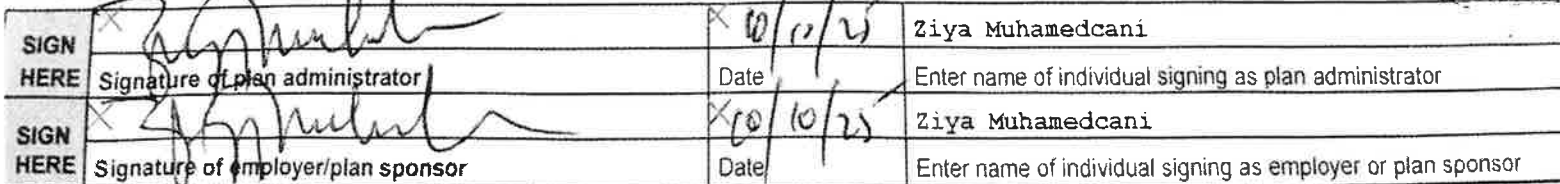 SIGN HERE
X 10/10/25 Ziya Muhamedcani
Signature of plan administrator Date Enter name of individual signing as plan administrator
SIGN HERE
X 10/10/25 Ziya Muhamedcani
Signature of employer/plan sponsor Date Enter name of individual signing as employer or plan sponsor